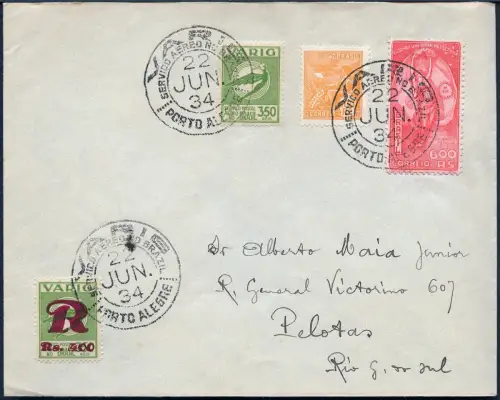 VARIG
SERVIÇO AEREO NO BRAZIL
22
JUN.
34
PORTO ALEGRE
VARIG
350
VARIG
SERVIÇO AEREO NO BRAZIL
22
JUN.
34
PORTO ALEGRE
600
CORREIO RS
VARIG
SERVIÇO AEREO NO BRAZIL
22
JUN.
34
PORTO ALEGRE
VARIG
R
Rs. 400
Dr Alberto Maia Junior
R. General Victorino 607
Pelotas
Rio G. do Sul